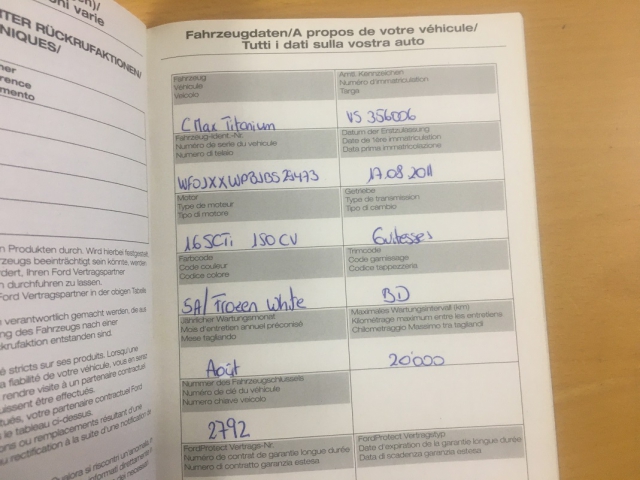 ni varie
TER RÜCKRUFAKTIONEN/
NIQUES/
rence
mento
n Produkten durch. Wird hierbei festgestellt,
rzeugs beeinträchtigt sein könnte, werden
rdert, Ihren Ford Vertragspartner
n durchführen zu lassen.
Ford Vertragspartner in der obigen Tabelle
verantwortlich gemacht werden, die aus
ng des Fahrzeugs nach einer
ckrufaktion entstanden sind.
é stricts sur ses produits. Lorsqu'une
a fiabilité de votre véhicule, vous en serez
rendre visite à un partenaire contractuel
uissent être effectués.
tués, votre partenaire contractuel Ford
s le tableau ci-dessus.
ons ou remplacements résultant d'une
u rectification à la suite d'une notification de
Fahrzeugdaten/A propos de votre véhicule/
Tutti i dati sulla vostra auto
Fahrzeug
Véhicule
Veicolo
CMax Titanium
Amtl. Kennzeichen
Numéro d'immatriculation
Targa
VS 356006
Fahrzeug-Ident.-Nr.
Numéro de serie du vehicule
Numero di telaio
Datum der Erstzulassung
Date de 1ère immatriculation
Data prima immatricolazione
17.08.2011
Motor
Type de moteur
Tipo di motore
1.6SCTi 150CV
Getriebe
Type de transmission
Tipo di cambio
6vitesses
Farbcode
Code couleur
Codice colore
SA/ Frozen White
Trimcode
Code garnissage
Codice tappezzeria
BD
Jährlicher Wartungsmonat
Mois d'entretien annuel préconisé
Mese tagliando
Août
Maximales Wartungsintervall (km)
Kilométrage maximum entre les entretiens
Chilometraggio Massimo tra tagliandi
20'000
Nummer des Fahrzeugschlüssels
Numéro de clé du véhicule
Numero chiave veicolo
2792
FordProtect Vertrags-Nr.
Numéro de contrat de garantie longue durée
Numero di contratto garanzia estesa
FordProtect Vertragstyp
Date d'expiration de la garantie longue durée
Data di scadenza garanzia estesa